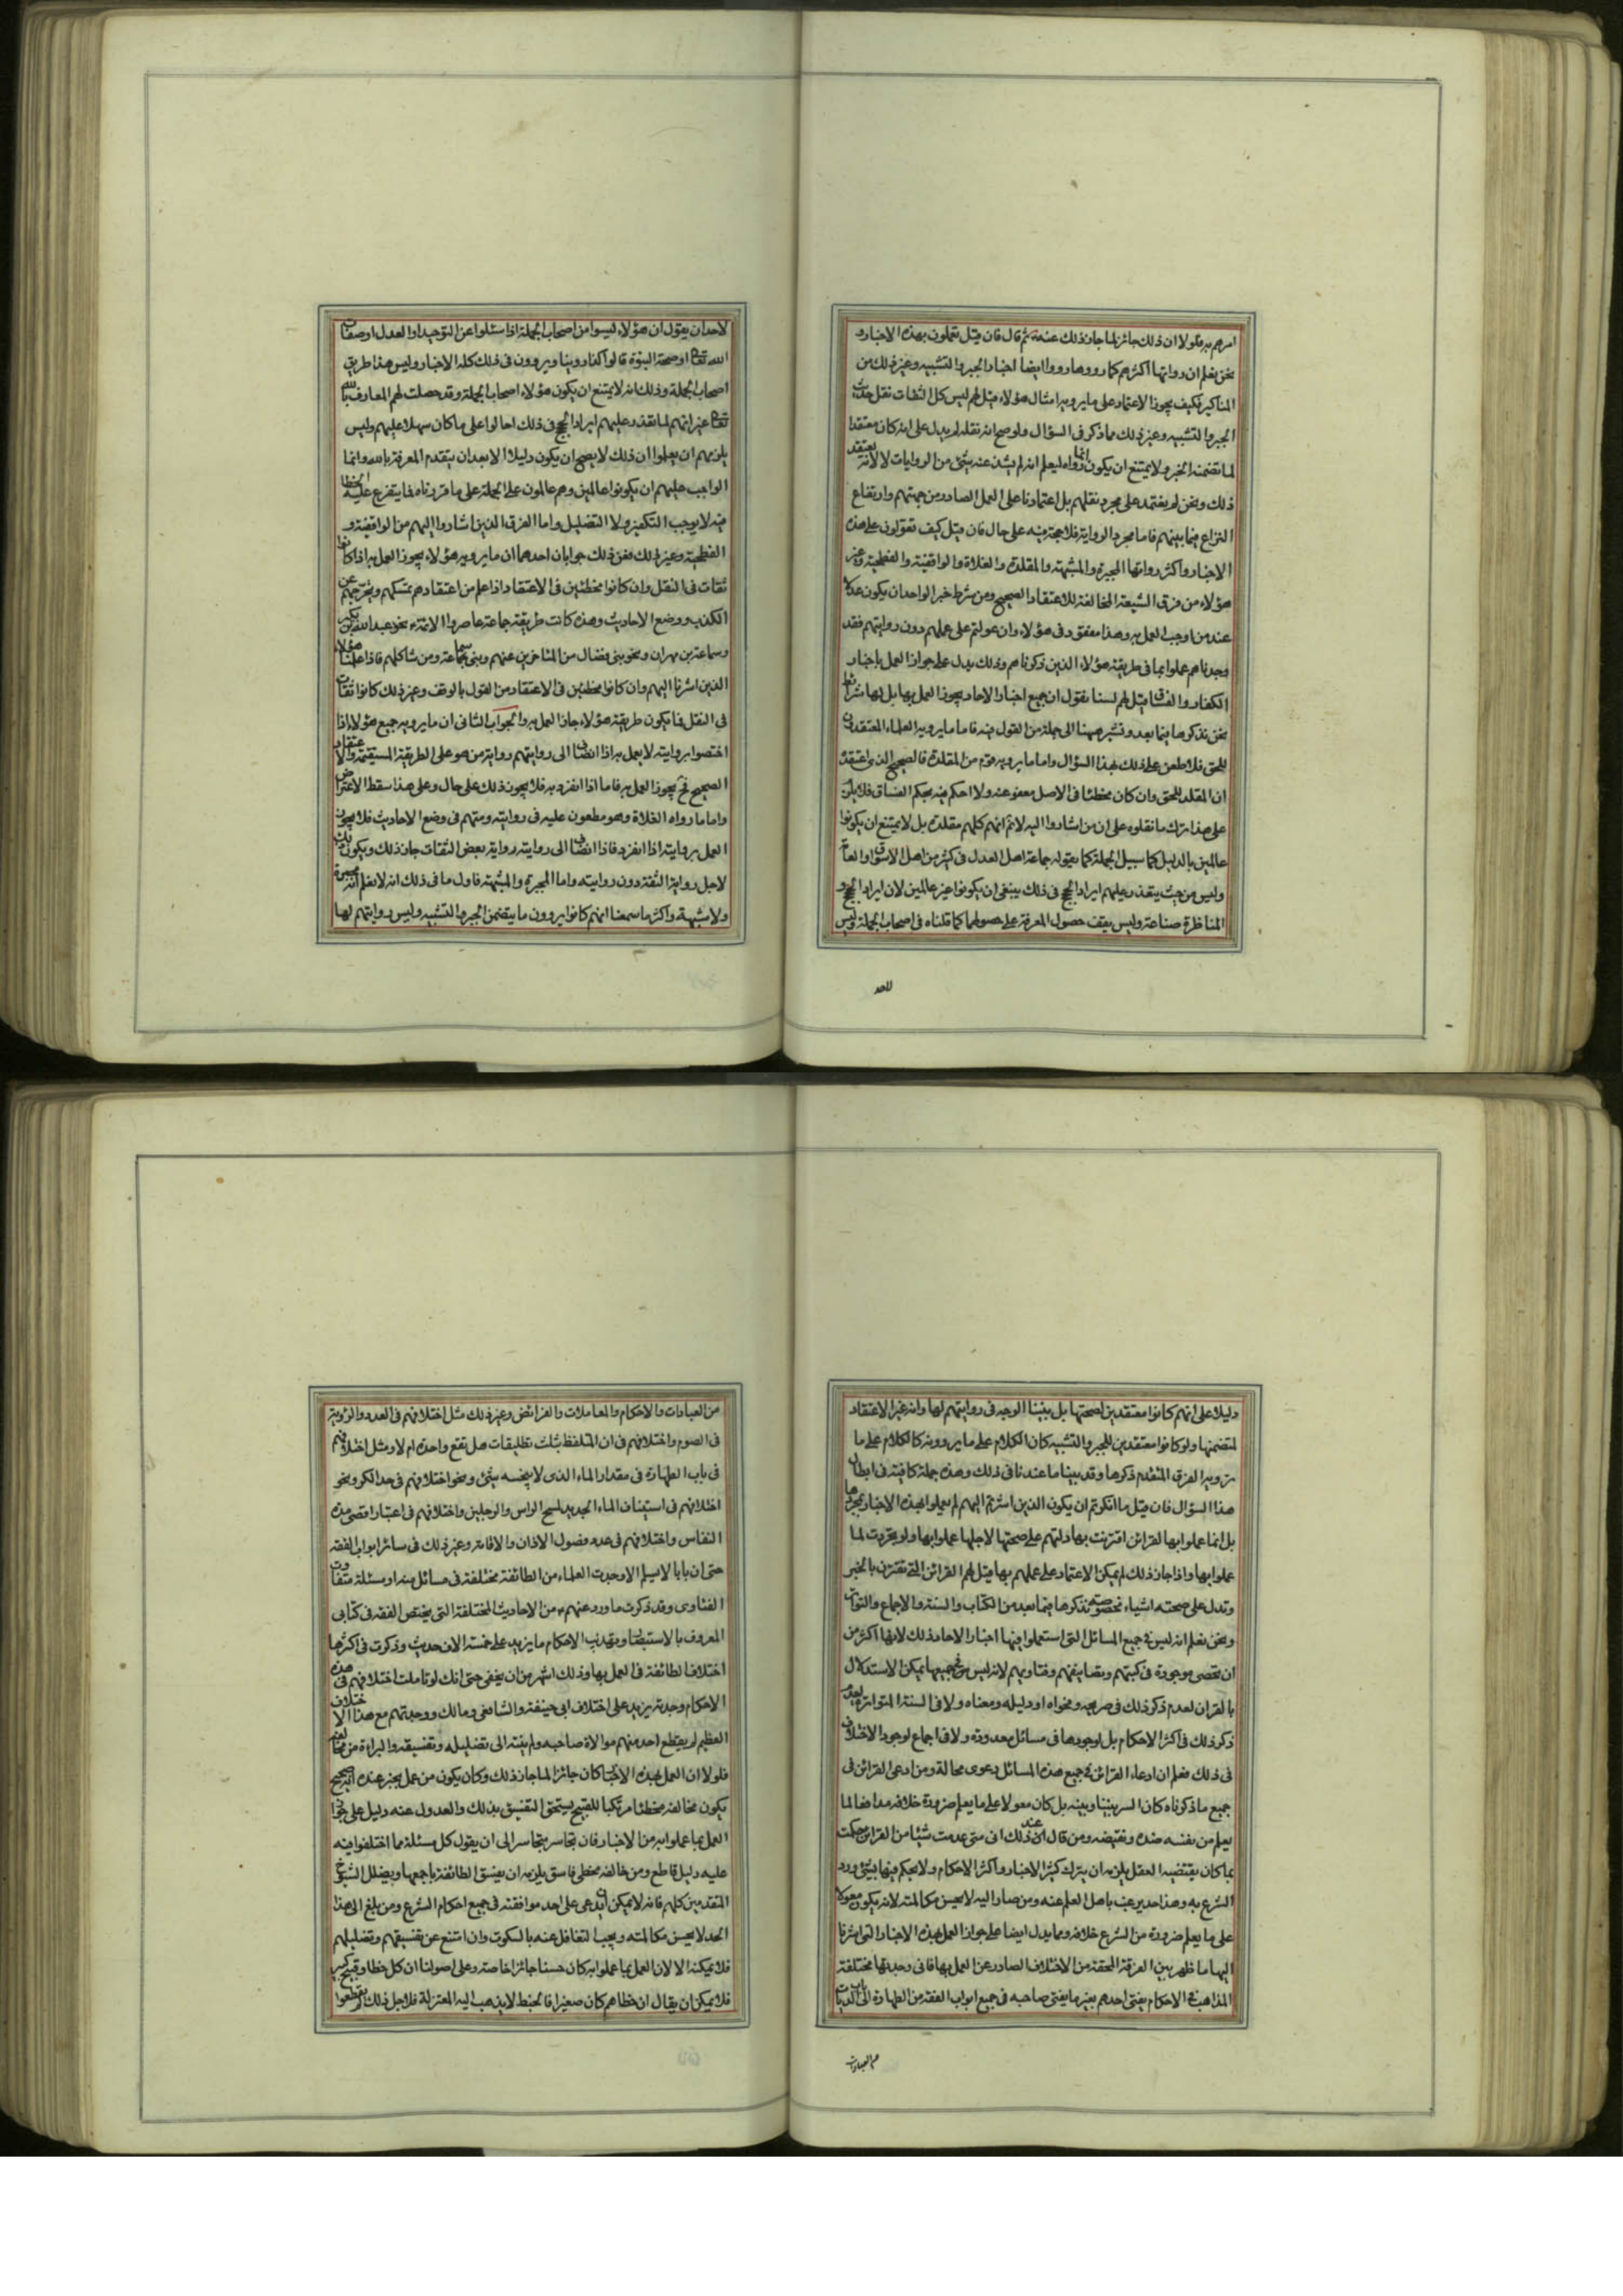 امرهم به فلولا ان ذلك جائز لما جاز ذلك عندهم ثم قال فان قيل تعملون بهذه الاخبار و
نحن نعلم ان رواتها اكثرهم كما رووها رووا ايضا اخبار الجبر والتشبيه وغير ذلك من
المناكير فكيف يجوز الاعتماد على ما يرويه امثال هؤلاء قيل لهم ليس كل الثقات نقل حديث
الجبر والتشبيه وغير ذلك مما ذكر في السؤال ولو صح انه نقله لم يدل على انه كان معتقدا
لما تضمنه الخبر ولا يمتنع ان يكون انما رواه ليعلم انه لم يشذ عنه شئ من الروايات لا لانه يعتقد
ذلك ونحن لم نعتمد على مجرد نقلهم بل اعتمادنا على العمل الصادر من جهتهم وارتفاع
النزاع فيما بينهم فاما مجرد الرواية فلا حجة فيه على حال فان قيل كيف تعولون على هذه
الاخبار واكثر رواتها المجبرة والمشبهة والمقلدة والغلاة والواقفية والفطحية وغير
هؤلاء من فرق الشيعة المخالفة للاعتقاد الصحيح ومن شرط خبر الواحد ان يكون عدلا
عند من اوجب العمل به وهذا مفقود في هؤلاء وان عولتم على عملهم دون روايتهم فقد
وجدناهم عملوا بما في طريقه هؤلاء الذين ذكرناهم وذلك يدل على جواز العمل باخبار
الكفار والفساق قيل لهم لسنا نقول ان جميع اخبار الاحاد يجوز العمل بها بل لها شرائط
نحن نذكرها فيما بعد ونشير ههنا الى جملة من القول فيه فاما ما يرويه العلماء المعتقدون
للحق فلا طعن على ذلك بهذا السؤال واما ما يرويه قوم من المقلدة فالصحيح الذي اعتقده
ان المقلد للحق وان كان مخطئا في الاصل معفو عنه ولا احكم فيه بحكم الفساق فلا يلزم
على هذا ترك ما نقلوه على ان من اشاروا اليه لا نم انهم كلهم مقلدة بل لا يمتنع ان يكونوا
عالمين بالدليل كما سبيل الجملة كما يقوله جماعة اهل العدل في كثير من اهل الاسواق والعامة
وليس من حيث يتعذر عليهم ايراد الحجج في ذلك ينبغي ان يكونوا غير عالمين لان ايراد الحجج و
المناظرة صناعة وليس يقف حصول المعرفة على حصولها كما قلناه في اصحاب الجملة وليس
لاحد
لاحد ان يقول ان هؤلاء ليسوا من اصحاب الجملة اذا سئلوا عن التوحيد او العدل او صفات
الله تعالى او صحة النبوة قالوا كذا روينا ويروون في ذلك كله الاخبار وليس هذا طريق
اصحاب الجملة وذلك انه لا يمتنع ان يكون هؤلاء اصحاب الجملة وقد حصلت لهم المعارف بالله
تعالى غير انهم لما تعذر عليهم ايراد الحجج في ذلك احالوا على ما كان سهلا عليهم وليس
يلزمهم ان يعلموا ان ذلك لا يصح ان يكون دليلا الا بعد ان يتقدم المعرفة بالله وانما
الواجب عليهم ان يكونوا عالمين وهم عالمون على الجملة على ما قررناه فما يتفرع عليه الخطا
فيه لا يوجب التكفير ولا التضليل واما الفرق الذين اشاروا اليهم من الواقفية و
الفطحية وغير ذلك فعن ذلك جوابان احدهما ان ما يرويه هؤلاء يجوز العمل به اذا كانوا
ثقات في النقل وان كانوا مخطئين في الاعتقاد اذا علم من اعتقادهم تمسكهم وتحرجهم عن
الكذب ووضع الاحاديث وهذه كانت طريقة جماعة عاصروا الائمة ء نحو عبد الله بن بكير
وسماعة بن مهران ونحو بني فضال من المتاخرين عنهم وبني سماعة ومن شاكلهم فاذا علمنا هؤلاء
الذين اشرنا اليهم وان كانوا مخطئين في الاعتقاد من القول بالوقف وغير ذلك كانوا ثقات
في النقل فما يكون طريقه هؤلاء جاز العمل به والجواب الثاني ان ما يرويه جميع هؤلاء اذا
اختصوا بروايته لا يعمل به اذا انضاف الى روايتهم رواية من هو على الطريقة المستقيمة والاعتقاد
الصحيح فح يجوز العمل به فاما اذا انفرد به فلا يجوز ذلك على حال وعلى هذا سقط الاعتراض
واما ما رواه الغلاة ومن هو مطعون عليه في روايته ومتهم في وضع الاحاديث فلا يجوز
العمل بروايته اذا انفرد فاذا انضاف الى روايته رواية بعض الثقات جاز ذلك ويكون ذلك
لاجل رواية الثقة دون روايته واما المجبرة والمشبهة فاول ما في ذلك انه لا نعلم انهم مجبرة
ولا مشبهة واكثر ما سمعنا انهم كانوا يروون ما يتضمن الجبر والتشبيه وليس روايتهم لها
دليلا على انهم كانوا معتقدين لصحتها بل بينا الوجه في روايتهم لها وانه غير الاعتقاد
لمتضمنها ولو كانوا معتقدين للجبر والتشبيه كان الكلام على ما يروونه كالكلام على ما
يرويه الفرق المتقدم ذكرها وقد بينا ما عندنا في ذلك وهذه جملة كافية في ابطال
هذا السؤال فان قيل ما انكرتم ان يكون الذين اشرتم اليهم لم يعملوا بهذه الاخبار بمجردها
بل انما عملوا بها لقرائن اقترنت بها دلتهم على صحتها لاجلها عملوا بها ولو تجردت لما
عملوا بها واذا جاز ذلك لم يمكن الاعتماد على عملهم بها قيل لهم القرائن التي تقترن بالخبر
وتدل على صحته اشياء مخصوصة نذكرها فيما بعد من الكتاب والسنة والاجماع والتواتر
ونحن نعلم انه ليس في جميع المسائل التي استعملوا فيها اخبار الاحاد ذلك لانها اكثر من
ان تحصى موجودة في كتبهم وتصانيفهم وفتاويهم لانه ليس في جميعها يمكن الاستدلال
بالقران لعدم ذكر ذلك في صريحه وفحواه او دليله ومعناه ولا في السنة المتواترة لعدم
ذكر ذلك في اكثر الاحكام بل لوجودها في مسائل معدودة ولا في اجماع لوجود الاختلاف
في ذلك فعلم ان ادعاء القرائن في جميع هذه المسائل دعوى محالة ومن ادعى القرائن في
جميع ما ذكرناه كان السبر بيننا وبينه بل كان معولا على ما يعلم ضرورة خلافه مدافعا لما
يعلم من نفسه ضده ونقيضه ومن قال عند ذلك اني متى عدمت شيئا من القرائن حكمت
بما كان يقتضيه العقل يلزمه ان يترك اكثر الاخبار واكثر الاحكام ولا يحكم فيها بشئ ورد
الشرع به وهذا حد يرغب باهل العلم عنه ومن صار اليه لا يحسن مكالمته لانه يكون معولا
على ما يعلم ضرورة من الشرع خلافه ومما يدل ايضا على جواز العمل بهذه الاخبار التي اشرنا
اليها ما ظهر بين الفرقة المحقة من الاختلاف الصادر عن العمل بها فاني وجدتها مختلفة
المذاهب في الاحكام يفتي احدهم بغير ما يفتي صاحبه في جميع ابواب الفقه من الطهارة الى باب الديات
من العبادات
من العبادات والاحكام والمعاملات والفرائض وغير ذلك مثل اختلافهم في العدد والرؤية
في الصوم واختلافهم في ان التلفظ بثلث تطليقات هل تقع واحدة ام لا ومثل اختلافهم
في باب الطهارة في مقدار الماء الذي لا ينجسه شئ ونحو اختلافهم في حد الكر ونحو
اختلافهم في استيناف الماء الجديد لمسح الراس والرجلين واختلافهم في اعتبار اقصى مدة
النفاس واختلافهم في عدد فصول الاذان والاقامة وغير ذلك في سائر ابواب الفقه
حتى ان بابا لا يسلم الا وجدت العلماء من الطائفة مختلفة في مسائل منه او مسئلة متفاوت
الفتاوى وقد ذكرت ما ورد عنهم ء من الاحاديث المختلفة التي يختص الفقه في كتابي
المعروف بالاستبصار وتهذيب الاحكام ما يزيد على خمسة الاف حديث وذكرت في اكثرها
اختلاف الطائفة في العمل بها وذلك اشهر من ان يخفى حتى انك لو تاملت اختلافهم في هذه
الاحكام وجدته يزيد على اختلاف ابي حنيفة والشافعي ومالك ووجدتهم مع هذا الاختلاف
العظيم لم يقطع احد منهم موالاة صاحبه ولم ينته الى تضليله وتفسيقه والبراءة من مخالفه
فلولا ان العمل بهذه الاخبار كان جائزا لما جاز ذلك وكان يكون من عمل بخبر عنده انه صحيح
يكون مخالفه مخطئا مرتكبا للقبيح يستحق التفسيق بذلك والعدول عنه دليل على جواز
العمل بما عملوا به من الاخبار فان تجاسر متجاسر الى ان يقول كل مسئلة مما اختلفوا فيه
عليه دليل قاطع ومن خالفه مخطئ فاسق يلزمه ان يفسق الطائفة باجمعها ويضلل الشيوخ
المتقدمين كلهم فانه لا يمكن ان يدعى على احد موافقته في جميع احكام الشرع ومن بلغ الى هذا
الحد لا يحسن مكالمته ويجب التغافل عنه بالسكوت وان امتنع عن تفسيقهم وتضليلهم
فلا يمكنه الا لان العمل بما عملوا به كان حسنا جائزا خاصة وعلى اصولنا ان كل خطا وقبيح كبير
فلا يمكن ان يقال ان خطاهم كان صغيرا فانحبط لا يذهب اليه المعتزلة فلاجل ذلك لم يقطعوا